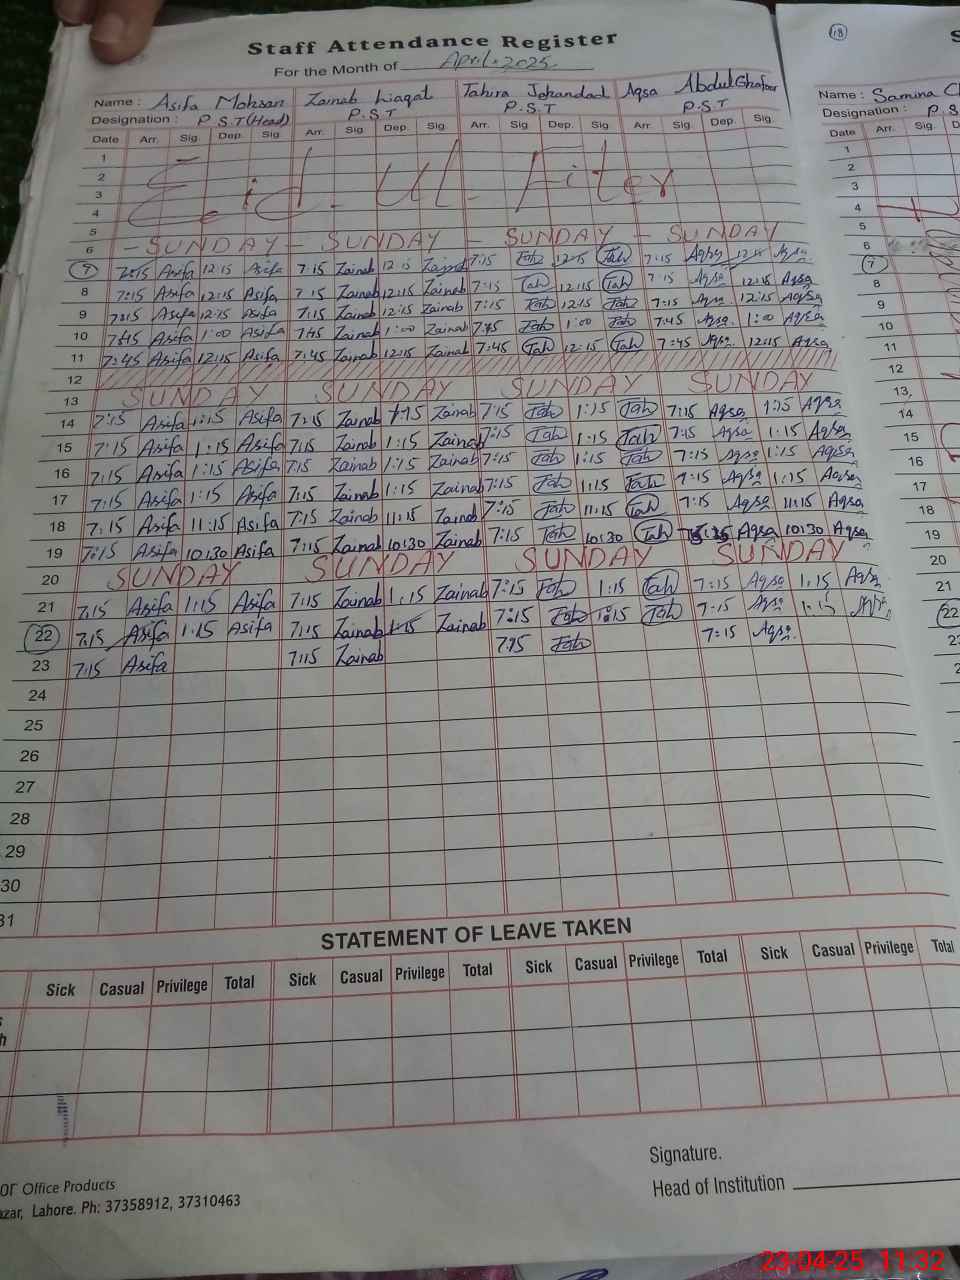 Staff Attendance Register
For the Month of April.2025
Name : Asifa Mohsan Zainab Liaqat Tahira Jehandad Aqsa Abdul Ghafoor
Designation : P.S.T (Head) P.S.T P.S.T P.S.T
Date Arr. Sig. Dep. Sig. Arr. Sig. Dep. Sig. Arr. Sig Dep. Sig Arr. Sig. Dep. Sig.
1
2
3
4
Eid Ul Fiter
5
6 - SUNDAY - SUNDAY - SUNDAY - SUNDAY
7 7:15 Asifa 12:15 Asifa 7:15 Zainab 12:15 Zainab 7:15 Tah 12:15 Tah 7:15 Aqsa 12:15 Aqsa
8 7:15 Asifa 12:15 Asifa 7:15 Zainab 12:15 Zainab 7:15 Tah 12:15 Tah 7:15 Aqsa 12:15 Aqsa
9 7:15 Asifa 12:15 Asifa 7:15 Zainab 12:15 Zainab 7:15 Tah 12:15 Tah 7:15 Aqsa 12:15 Aqsa
10 7:45 Asifa 1:00 Asifa 7:45 Zainab 1:00 Zainab 7:45 Tah 1:00 Tah 7:45 Aqsa 1:00 Aqsa
11 7:45 Asifa 12:15 Asifa 7:45 Zainab 12:15 Zainab 7:45 Tah 12:15 Tah 7:45 Aqsa 12:15 Aqsa
12
13 SUNDAY SUNDAY SUNDAY SUNDAY
14 7:15 Asifa 1:15 Asifa 7:15 Zainab 1:15 Zainab 7:15 Tah 1:15 Tah 7:15 Aqsa 1:15 Aqsa
15 7:15 Asifa 1:15 Asifa 7:15 Zainab 1:15 Zainab 7:15 Tah 1:15 Tah 7:15 Aqsa 1:15 Aqsa
16 7:15 Asifa 1:15 Asifa 7:15 Zainab 1:15 Zainab 7:15 Tah 1:15 Tah 7:15 Aqsa 1:15 Aqsa
17 7:15 Asifa 1:15 Asifa 7:15 Zainab 1:15 Zainab 7:15 Tah 1:15 Tah 7:15 Aqsa 1:15 Aqsa
18 7:15 Asifa 11:15 Asifa 7:15 Zainab 11:15 Zainab 7:15 Tah 11:15 Tah 7:15 Aqsa 11:15 Aqsa
19 7:15 Asifa 10:30 Asifa 7:15 Zainab 10:30 Zainab 7:15 Tah 10:30 Tah Aqsa 10:30 Aqsa
20 SUNDAY SUNDAY SUNDAY SUNDAY
21 7:15 Asifa 1:15 Asifa 7:15 Zainab 1:15 Zainab 7:15 Tah 1:15 Tah 7:15 Aqsa 1:15 Aqsa
22 7:15 Asifa 1:15 Asifa 7:15 Zainab 1:15 Zainab 7:15 Tah 1:15 Tah 7:15 Aqsa 1:15 Aqsa
23 7:15 Asifa 7:15 Zainab 7:15 Tah 7:15 Aqsa.
24
25
26
27
28
29
30
31
STATEMENT OF LEAVE TAKEN
Sick Casual Privilege Total Sick Casual Privilege Total Sick Casual Privilege Total Sick Casual Privilege Total
Signature.
Head of Institution
Office Products
Lahore. Ph: 37358912, 37310463
18
Name : Samina
Designation :
Date Arr. Sig.
1
2
3
4
5
6
7
8
9
10
11
12
13
14
15
16
17
18
19
20
21
22
23-04-25 11:32